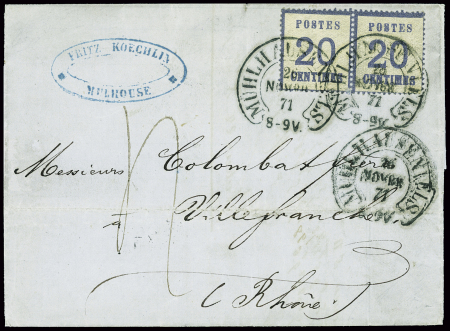 FRITZ KOECHLIN
MULHOUSE
POSTES
20
CENTIMES
POSTES
20
CENTIMES
MÜHLHAUSEN i. ELS.
26
NOVBR
71
8-9V.
MÜHLHAUSEN i. ELS.
26
NOVBR
71
8-9V.
MÜHLHAUSEN i. ELS.
26
NOVBR
71
8-9V.
Messieurs Colombat
à Villefranche
(Rhône)